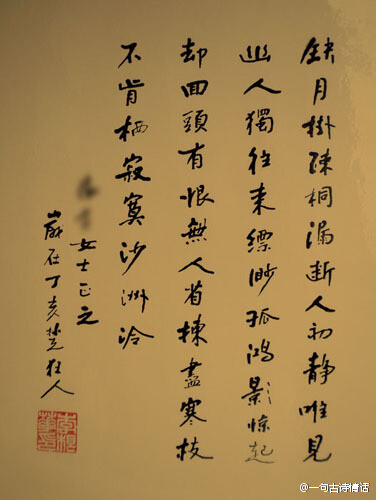 缺月掛疎桐漏断人初静唯見
幽人獨往来縹渺孤鴻影惊起
却回頭有恨無人省揀盡寒枝
不肯栖寂寞沙洲冷
女士正之
歲在丁亥楚狂人
@一句古诗情话